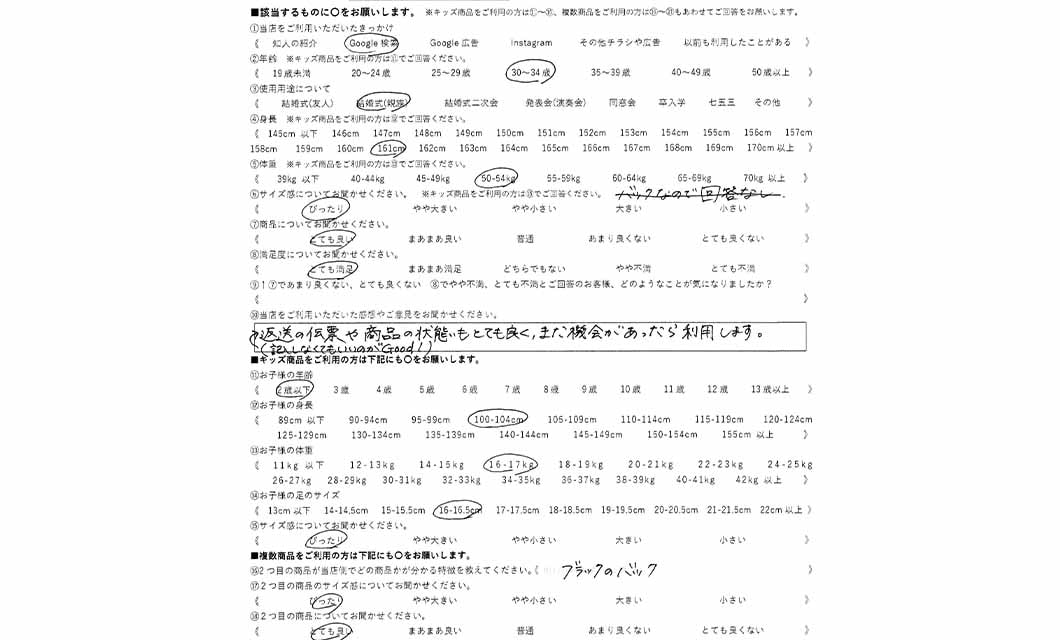 ■該当するものに〇をお願いします。 ※キッズ商品をご利用の方は⑪～⑮、複数商品をご利用の方は⑯～⑱もあわせてご回答をお願いします。
①当店をご利用いただいたきっかけ
《 知人の紹介 Google 検索 Google 広告 Instagram その他チラシや広告 以前も利用したことがある 》
②年齢 ※キッズ商品をご利用の方は⑪でご回答ください。
《 19歳未満 20～24歳 25～29歳 30～34歳 35～39歳 40～49歳 50歳以上 》
③使用用途について
《 結婚式(友人) 結婚式(親族) 結婚式二次会 発表会(演奏会) 同窓会 卒入学 七五三 その他 》
④身長 ※キッズ商品をご利用の方は⑫でご回答ください。
《 145cm 以下 146cm 147cm 148cm 149cm 150cm 151cm 152cm 153cm 154cm 155cm 156cm 157cm
158cm 159cm 160cm 161cm 162cm 163cm 164cm 165cm 166cm 167cm 168cm 169cm 170cm以上 》
⑤体重 ※キッズ商品をご利用の方は⑬でご回答ください。
《 39kg 以下 40-44kg 45-49kg 50-54kg 55-59kg 60-64kg 65-69kg 70kg 以上 》
⑥サイズ感についてお聞かせください。 ※キッズ商品をご利用の方は⑮でご回答ください。 バックなので回答なし.
《 ぴったり やや大きい やや小さい 大きい 小さい 》
⑦商品についてお聞かせください。
《 とても良い まあまあ良い 普通 あまり良くない とても良くない 》
⑧満足度についてお聞かせください。
《 とても満足 まあまあ満足 どちらでもない やや不満 とても不満 》
⑨1⑦であまり良くない、とても良くない ⑧でやや不満、とても不満とご回答のお客様、どのようなことが気になりましたか？
《 》
⑩当店をご利用いただいた感想やご意見をお聞かせください。
返送の伝票や商品の状態もとても良く、また機会があったら利用します。
(記入しなくてもいいのがGood!)
■キッズ商品をご利用の方は下記にも〇をお願いします。
⑪お子様の年齢
《 2歳以下 3歳 4歳 5歳 6歳 7歳 8歳 9歳 10歳 11歳 12歳 13歳以上 》
⑫お子様の身長
《 89cm 以下 90-94cm 95-99cm 100-104cm 105-109cm 110-114cm 115-119cm 120-124cm
125-129cm 130-134cm 135-139cm 140-144cm 145-149cm 150-154cm 155cm 以上 》
⑬お子様の体重
《 11kg 以下 12-13kg 14-15kg 16-17kg 18-19kg 20-21kg 22-23kg 24-25kg
26-27kg 28-29kg 30-31kg 32-33kg 34-35kg 36-37kg 38-39kg 40-41kg 42kg 以上 》
⑭お子様の足のサイズ
《 13cm以下 14-14.5cm 15-15.5cm 16-16.5cm 17-17.5cm 18-18.5cm 19-19.5cm 20-20.5cm 21-21.5cm 22cm以上 》
⑮サイズ感についてお聞かせください。
《 ぴったり やや大きい やや小さい 大きい 小さい 》
■複数商品をご利用の方は下記にも〇をお願いします。
⑯2つ目の商品が当店側でどの商品かが分かる特徴を教えてください。《 ブラックのバック 》
⑰2つ目の商品のサイズ感についてお聞かせください。
《 ぴったり やや大きい やや小さい 大きい 小さい 》
⑱2つ目の商品についてお聞かせください。
《 とても良い まあまあ良い 普通 あまり良くない とても良くない 》